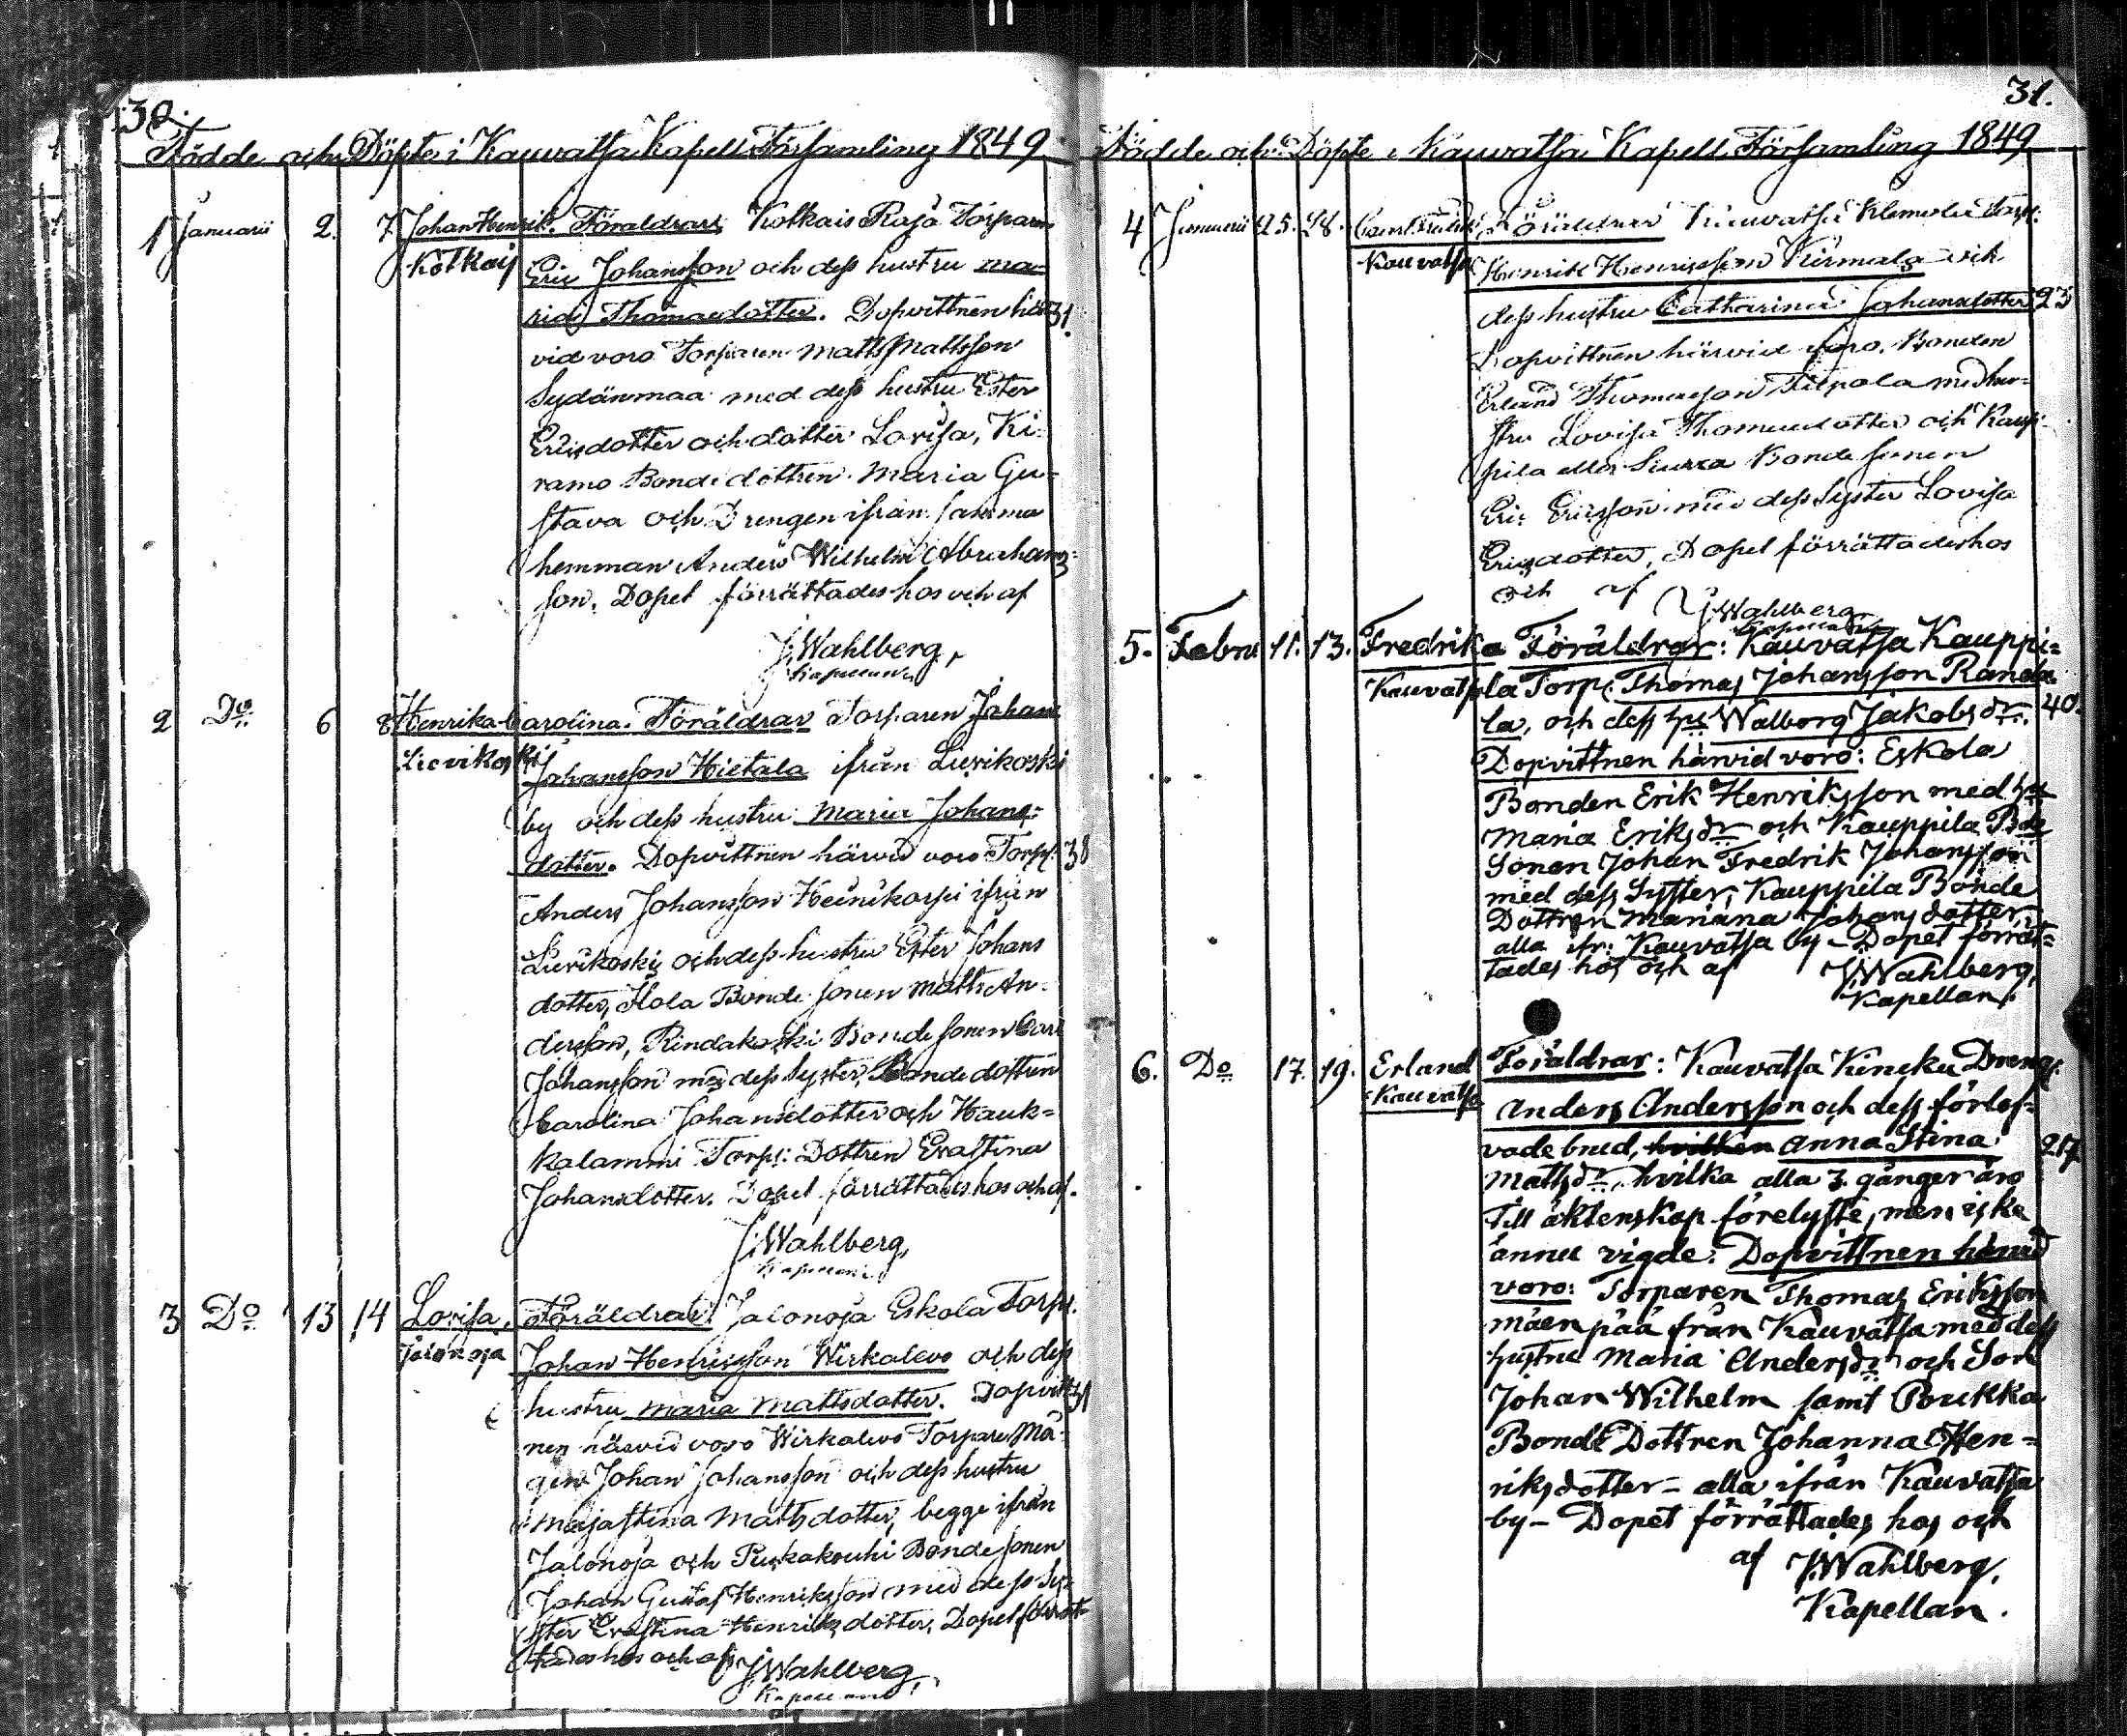 30.
Födde och Döpte i Kauvatsa Kapell Församling 1849
1 Januarii 2. 7. Johan Henrik. Föräldrar Kotkais Raja Torparen
Kotkais Eric Johansson och dess hustru Ma=
ria Thomasdotter. Dopvittnen här 31.
vid voro Torparen Matts Mattsson
Sydänmaa med dess hustru Ester
Ericsdotter och dotter Lovisa, Ki=
ramo Bondedottren Maria Gu=
stava och Drengen ifrån samma
hemman Anders Wilhelm Abrahams=
son. Dopet förrättades hos och af
J. Wahlberg,
Kapellan
2 Do 6 8 Henrika Carolina. Föräldrar Torparen Johan
Lievikoski Johansson Hietala ifrån Lievikoski
by och dess hustru Maria Johans=
dotter. Dopvittnen härvid voro Torp: 38
Anders Johansson Heinikorpi ifrån
Lievikoski och dess hustru Ester Johans
dotter, Bonde sonen Matts An=
dersson, Bonde sonen Carl
Johansson med dess Syster, Bonde dottren
Carolina Johansdotter och Hauk=
kalammi Torp: Dottren Evastina
Johansdotter. Dopet förrättades hos och af.
J. Wahlberg,
Kapellan
3 Do 13 14 Lovisa. Föräldrar: Jalonoja Eskola Torp:
Jalonoja Johan Henricsson Wirkalevo och dess
hustru Maria Mattsdotter. Dopvitt 31
nen härvid voro Wirkalevo Torpare Må=
gen Johan Johansson och dess hustru
Majastina Mattsdotter, begge ifrån
Jalonoja och Bonde sonen
Johan Gustaf Henriksson med dess Sy=
ster Evastina Henriksdotter. Dopet förrät=
tades hos och af J. Wahlberg,
Kapellan
31.
Födde och Döpte i Kauvatsa Kapell Församling 1849
4 Januarii 25. 28. Carl Fredrik Föräldrar Kauvatsa Torp:
Kauvatsa Henrik Henricsson och
dess hustru Catharina Johansdotter 23
Dopvittnen härvid voro. Bonden
Erland Thomasson med hu=
stru Lovisa Thomasdotter och Kaup=
pila eller Bonde sonen
Eric Ericsson med dess Syster Lovisa
Ericsdotter, Dopet förrättades hos
och af J. Wahlberg
Kapellan
5. Febru 11. 13. Fredrika Föräldrar: Kauvatsa Kauppi=
Kauvatsa la Torp: Thomas Johansson Randa
la, och dess hu Walborg Jakobs dr. 40.
Dopvittnen härvid voro: Eskola
Bonden Erik Henriksson med hu
Maria Eriks dr och Kauppila Bde
Sonen Johan Fredrik Johansson
med dess Syster, Kauppila Bonde
Dottren Mariana Johansdotter,
alla ifr: Kauvatsa by - Dopet förrät=
tades hos och af J. Wahlberg,
Kapellan.
6. Do 17. 19. Erland Föräldrar: Kauvatsa Dreng:
Kauvatsa Anders Andersson och dess förlof=
vade brud, hvilken Anna Stina 27
Matts dr, hvilka alla 3. gånger äro
till äktenskap förelyste, men icke
ännu vigde. Dopvittnen härvid
voro: Torparen Thomas Eriksson
Mäenpää från Kauvatsa med dess
hustru Maria Anders dr och Son
Johan Wilhelm samt Pukka
Bonde Dottren Johanna Hen=
riksdotter - alla ifrån Kauvatsa
by - Dopet förrättades hos och
af J. Wahlberg.
Kapellan.